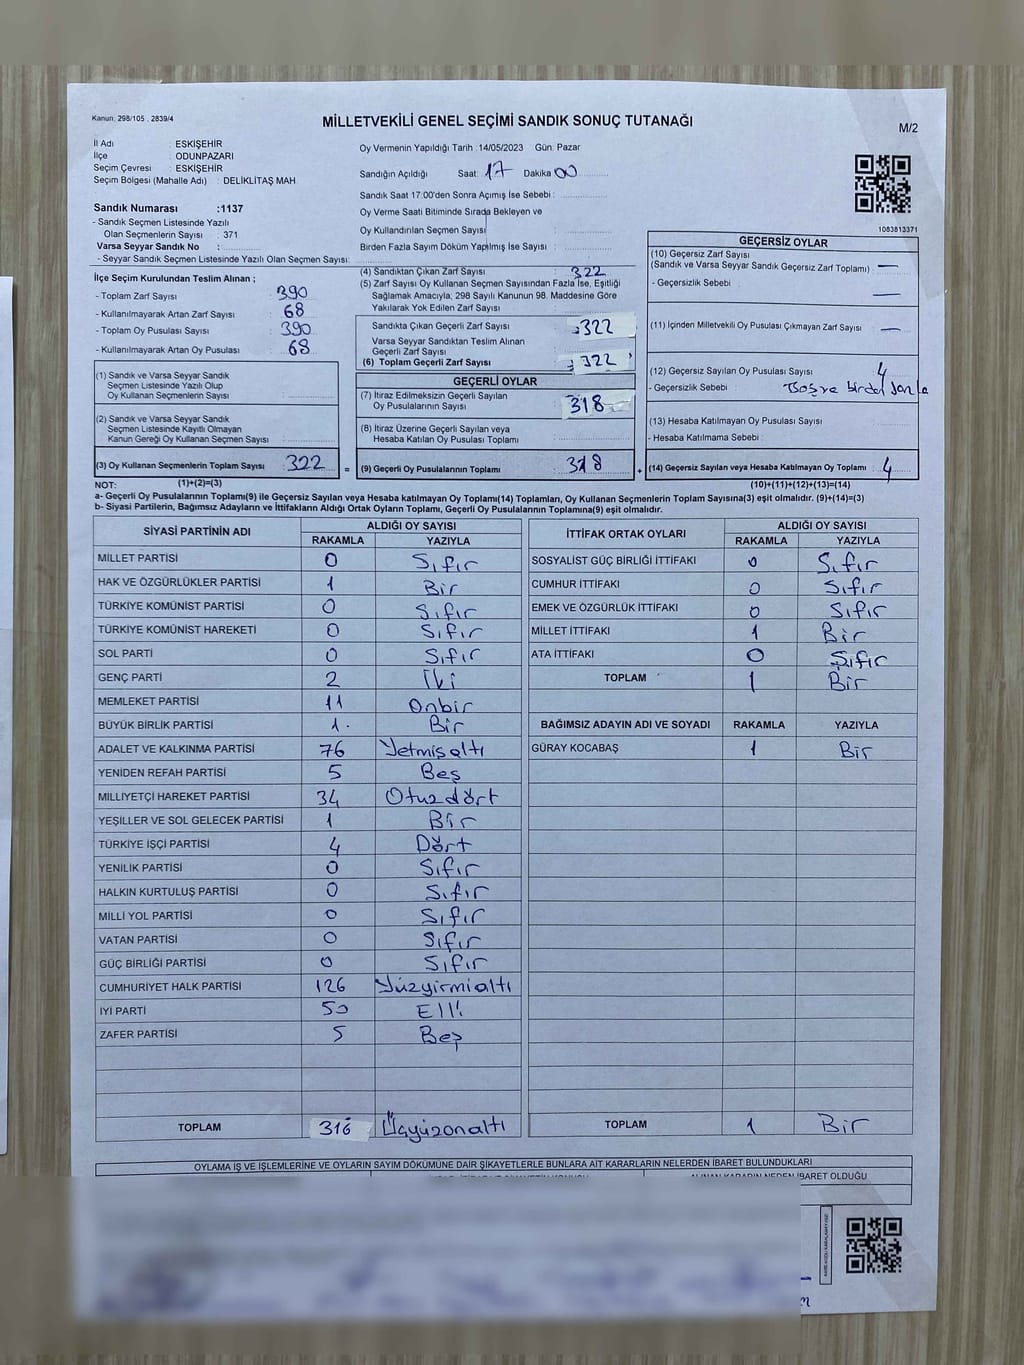 Kanun, 298/105 . 2839/4
MİLLETVEKİLİ GENEL SEÇİMİ SANDIK SONUÇ TUTANAĞI
M/2
İl Adı : ESKİŞEHİR
İlçe : ODUNPAZARI
Seçim Çevresi : ESKİŞEHİR
Seçim Bölgesi (Mahalle Adı) : DELİKLİTAŞ MAH.
Sandık Numarası :1137
- Sandık Seçmen Listesinde Yazılı
Olan Seçmenlerin Sayısı : 371
Varsa Seyyar Sandık No :
- Seyyar Sandık Seçmen Listesinde Yazılı Olan Seçmen Sayısı:
Oy Vermenin Yapıldığı Tarih :14/05/2023 Gün: Pazar
Sandığın Açıldığı Saat: 17 Dakika 00
Sandık Saat 17:00'den Sonra Açımış İse Sebebi :
Oy Verme Saati Bitiminde Sırada Bekleyen ve
Oy Kullandırılan Seçmen Sayısı :
Birden Fazla Sayım Döküm Yapılmış İse Sayısı :
1083813371
İlçe Seçim Kurulundan Teslim Alınan ;
- Toplam Zarf Sayısı : 390
- Kullanılmayarak Artan Zarf Sayısı : 68
- Toplam Oy Pusulası Sayısı : 390
- Kullanılmayarak Artan Oy Pusulası : 68
(1) Sandık ve Varsa Seyyar Sandık
Seçmen Listesinde Yazılı Olup
Oy Kullanan Seçmenlerin Sayısı :
(2) Sandık ve Varsa Seyyar Sandık
Seçmen Listesinde Kayıtlı Olmayan
Kanun Gereği Oy Kullanan Seçmen Sayısı :
(3) Oy Kullanan Seçmenlerin Toplam Sayısı : 322 =
(4) Sandıktan Çıkan Zarf Sayısı : 322
(5) Zarf Sayısı Oy Kullanan Seçmen Sayısından Fazla İse, Eşitliği
Sağlamak Amacıyla, 298 Sayılı Kanunun 98. Maddesine Göre
Yakılarak Yok Edilen Zarf Sayısı :
Sandıkta Çıkan Geçerli Zarf Sayısı : 322
Varsa Seyyar Sandıktan Teslim Alınan
Geçerli Zarf Sayısı :
(6) Toplam Geçerli Zarf Sayısı : 322
GEÇERLİ OYLAR
(7) İtiraz Edilmeksizin Geçerli Sayılan
Oy Pusulalarının Sayısı : 318
(8) İtiraz Üzerine Geçerli Sayılan veya
Hesaba Katılan Oy Pusulası Toplamı :
(9) Geçerli Oy Pusulalarının Toplamı : 318 +
GEÇERSİZ OYLAR
(10) Geçersiz Zarf Sayısı
(Sandık ve Varsa Seyyar Sandık Geçersiz Zarf Toplamı) : —
- Geçersizlik Sebebi : —
(11) İçinden Milletvekili Oy Pusulası Çıkmayan Zarf Sayısı : —
(12) Geçersiz Sayılan Oy Pusulası Sayısı : 4
- Geçersizlik Sebebi : Boş ve birden fazla
(13) Hesaba Katılmayan Oy Pusulası Sayısı :
- Hesaba Katılmama Sebebi :
(14) Geçersiz Sayılan veya Hesaba Katılmayan Oy Toplamı : 4
NOT: (1)+(2)=(3) (10)+(11)+(12)+(13)=(14)
a- Geçerli Oy Pusulalarının Toplamı(9) ile Geçersiz Sayılan veya Hesaba katılmayan Oy Toplamı(14) Toplamları, Oy Kullanan Seçmenlerin Toplam Sayısına(3) eşit olmalıdır. (9)+(14)=(3)
b- Siyasi Partilerin, Bağımsız Adayların ve İttifakların Aldığı Ortak Oyların Toplamı, Geçerli Oy Pusulalarının Toplamına(9) eşit olmalıdır.
SİYASİ PARTİNİN ADI ALDIĞI OY SAYISI
RAKAMLA YAZIYLA
MİLLET PARTİSİ 0 Sıfır
HAK VE ÖZGÜRLÜKLER PARTİSİ 1 Bir
TÜRKİYE KOMÜNİST PARTİSİ 0 Sıfır
TÜRKİYE KOMÜNİST HAREKETİ 0 Sıfır
SOL PARTİ 0 Sıfır
GENÇ PARTİ 2 İki
MEMLEKET PARTİSİ 11 Onbir
BÜYÜK BİRLİK PARTİSİ 1 Bir
ADALET VE KALKINMA PARTİSİ 76 Yetmişaltı
YENİDEN REFAH PARTİSİ 5 Beş
MİLLİYETÇİ HAREKET PARTİSİ 34 Otuzdört
YEŞİLLER VE SOL GELECEK PARTİSİ 1 Bir
TÜRKİYE İŞÇİ PARTİSİ 4 Dört
YENİLİK PARTİSİ 0 Sıfır
HALKIN KURTULUŞ PARTİSİ 0 Sıfır
MİLLİ YOL PARTİSİ 0 Sıfır
VATAN PARTİSİ 0 Sıfır
GÜÇ BİRLİĞİ PARTİSİ 0 Sıfır
CUMHURİYET HALK PARTİSİ 126 Yüzyirmialtı
İYİ PARTİ 50 Elli
ZAFER PARTİSİ 5 Beş
TOPLAM 316 Üçyüzonaltı
İTTİFAK ORTAK OYLARI ALDIĞI OY SAYISI
RAKAMLA YAZIYLA
SOSYALİST GÜÇ BİRLİĞİ İTTİFAKI 0 Sıfır
CUMHUR İTTİFAKI 0 Sıfır
EMEK VE ÖZGÜRLÜK İTTİFAKI 0 Sıfır
MİLLET İTTİFAKI 1 Bir
ATA İTTİFAKI 0 Sıfır
TOPLAM 1 Bir
BAĞIMSIZ ADAYIN ADI VE SOYADI RAKAMLA YAZIYLA
GÜRAY KOCABAŞ 1 Bir
TOPLAM 1 Bir
OYLAMA İŞ VE İŞLEMLERİNE VE OYLARIN SAYIM DÖKÜMÜNE DAİR ŞİKAYETLERLE BUNLARA AİT KARARLARIN NELERDEN İBARET BULUNDUKLARI
ALINAN KARARIN NEDEN İBARET OLDUĞU